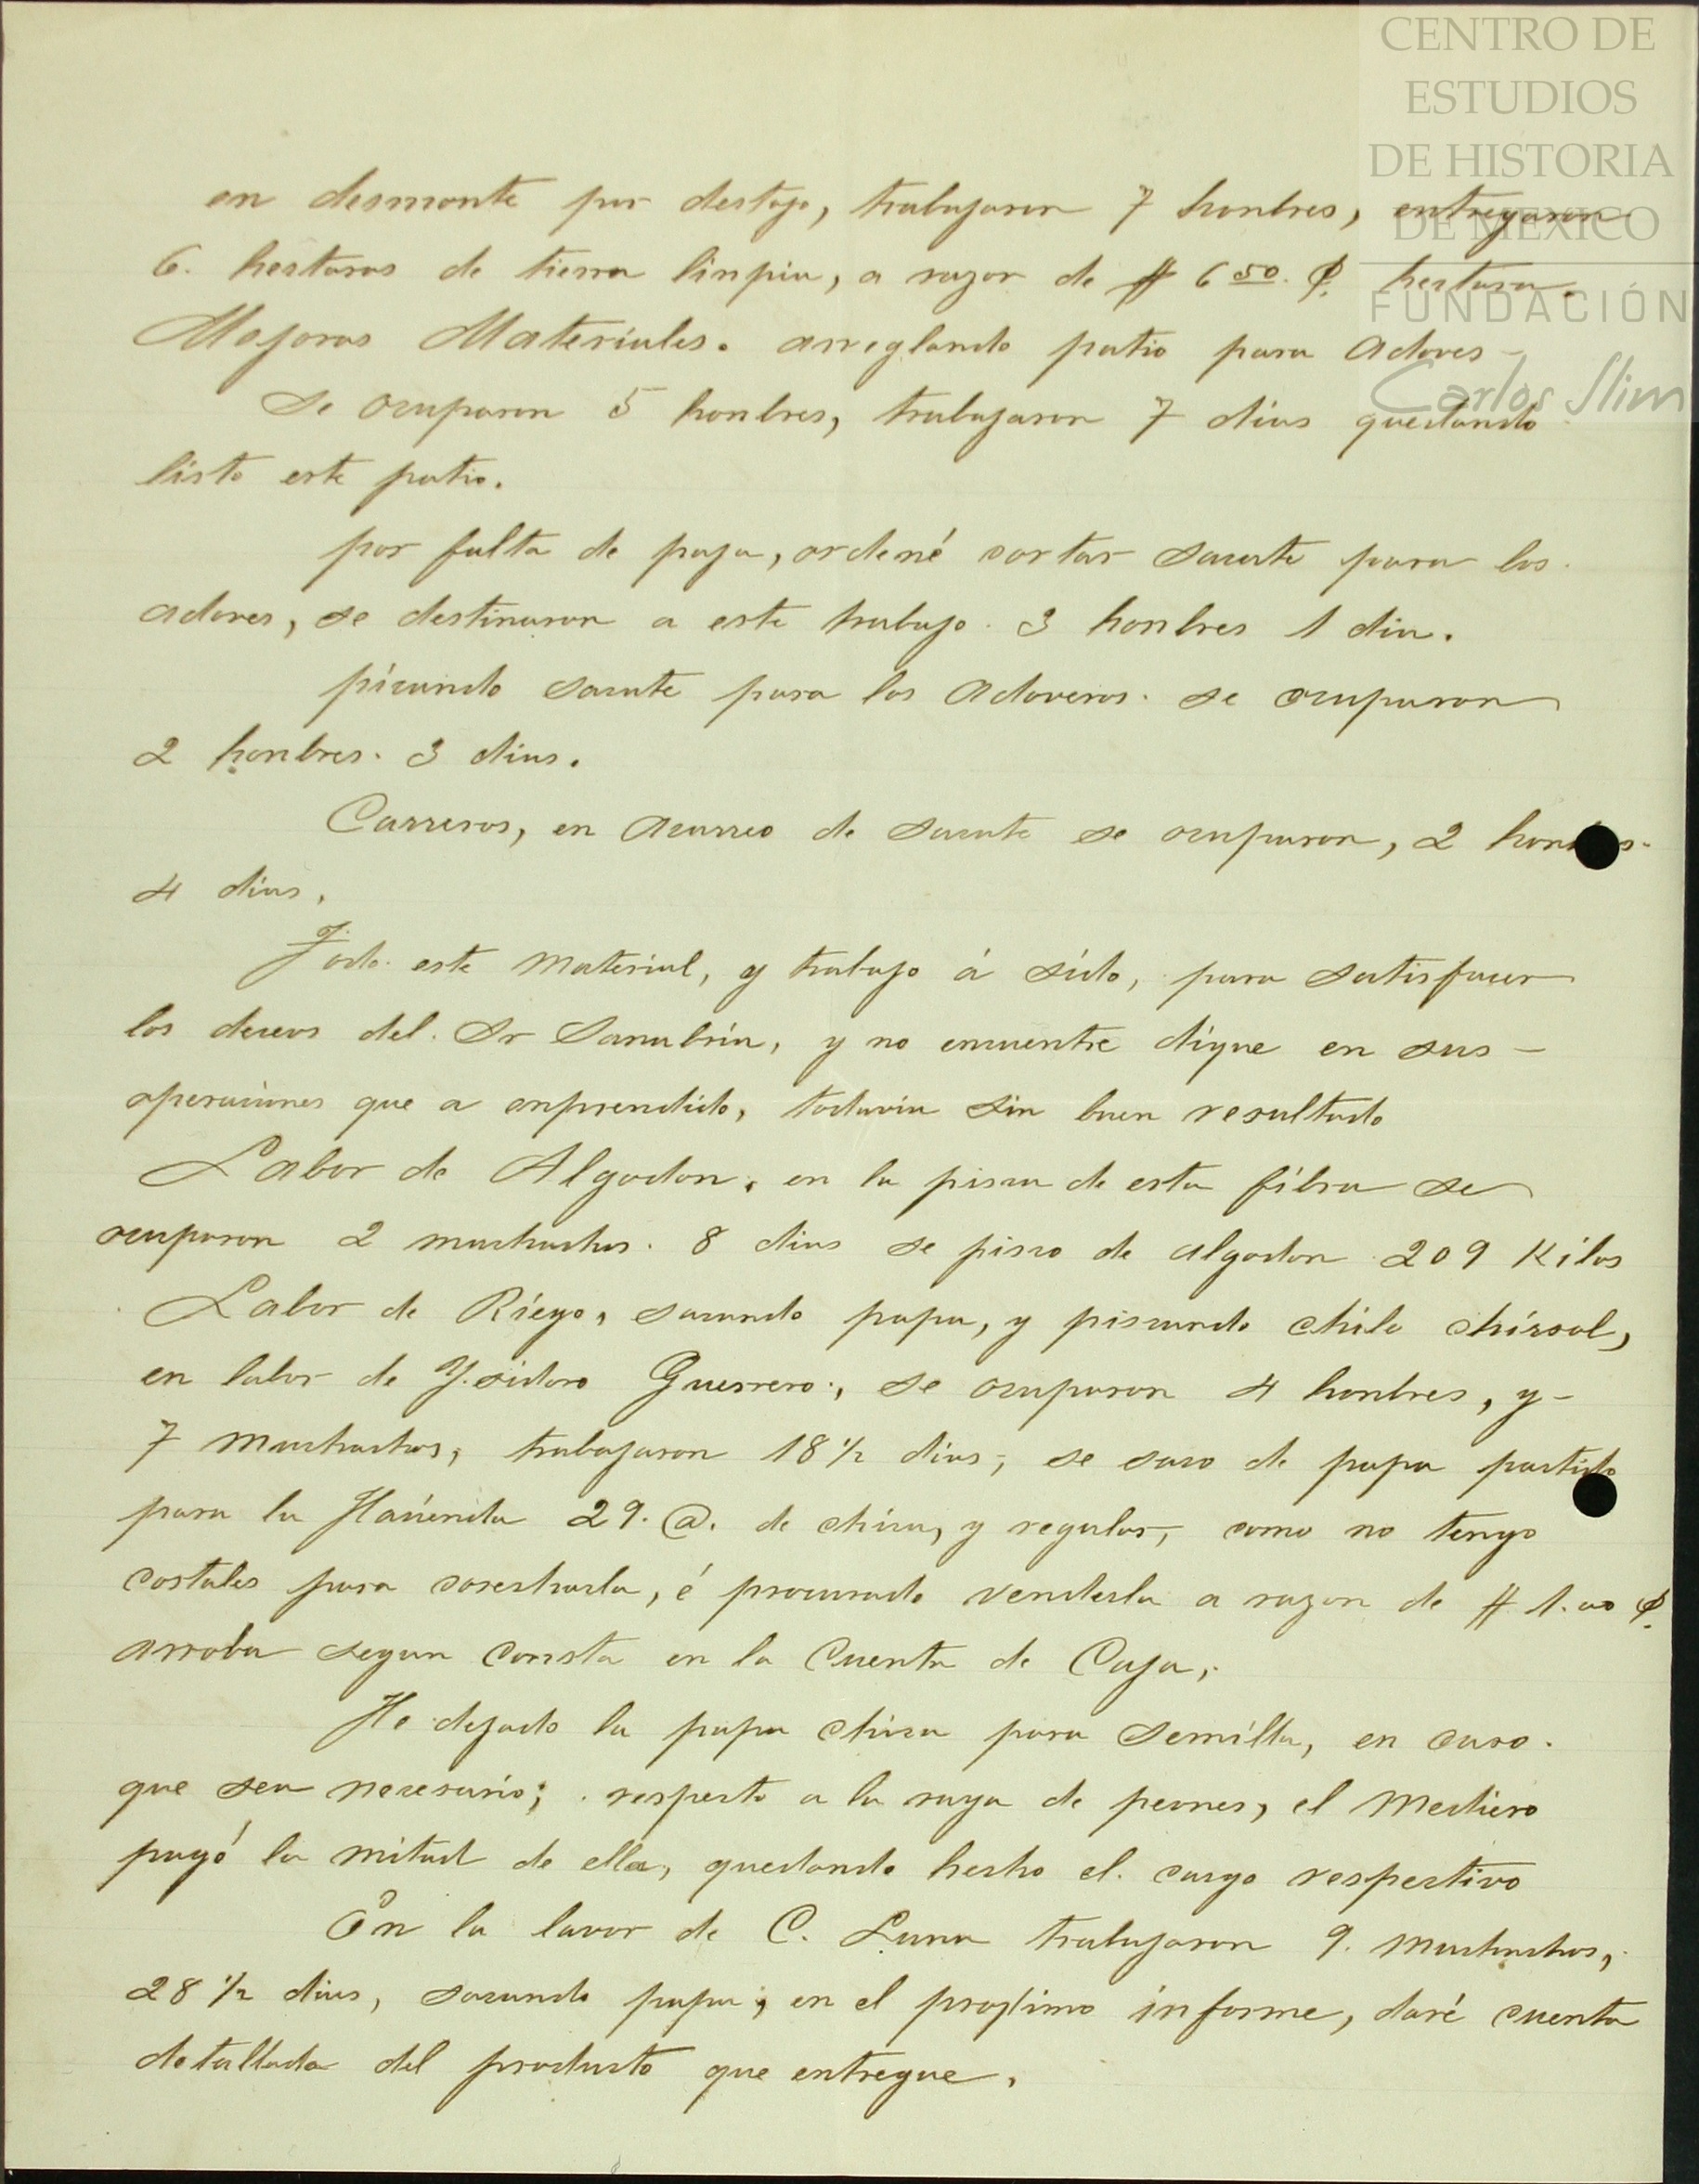 CENTRO DE
ESTUDIOS
DE HISTORIA
DE MEXICO
FUNDACIÓN
Carlos Slim
en desmonte por destajo, trabajaron 7 honbres, entregaron
6. hectaras de tierra linpia, a razon de $ 6 50. ₱. hectara.
Mejoras Materiales. arreglando patio para adoves –
se ocuparon 5 honbres, trabajaron 7 dias quedando
listo este patio.
por falta de paja, ordené cortar sacate para los.
adoves, se destinaron a este trabajo. 3 honbres 1 dia.
picando sacate para los adoveros. se ocuparon
2 honbres. 3 dias.
Carreros, en acarreo de sacate se ocuparon, 2
4 dias,
Todo. este material, y trabajo á sido, para satisfacer
los deceos del. Sr Sanabria, y no encuentre dique en sus –
operaciones que a enprendido, todavia sin buen resultado
Labor de Algodon, en la pisca de esta fibra se
ocuparon 2 muchachos. 8 dias se pisco de algodon 209 Kilos
Labor de Riego, sacando papa, y piscando chile chircal,
en labor de Ysidoro Guerrero., se ocuparon 4 honbres, y –
7 muchachos, trabajaron 18 1/2 dias, se saco de papa partido
para la Hacienda 29. @. de chica, y regular, como no tengo
costales para cosecharla, é procurado venderla a razon de $ 1.00 ₱.
arroba segun consta en la cuenta de Caja,.
He dejado la papa chica para semilla, en caso.
que sea necesario; respecto a la raya de peones, el mediero
pagó la mitad de ella, quedando hecho el. cargo respectivo
En la lavor de C. Luna trabajaron 9. muchachos,
28 1/2 dias, sacando papa, en el proximo informe, daré cuenta
detallada del producto que entregue,